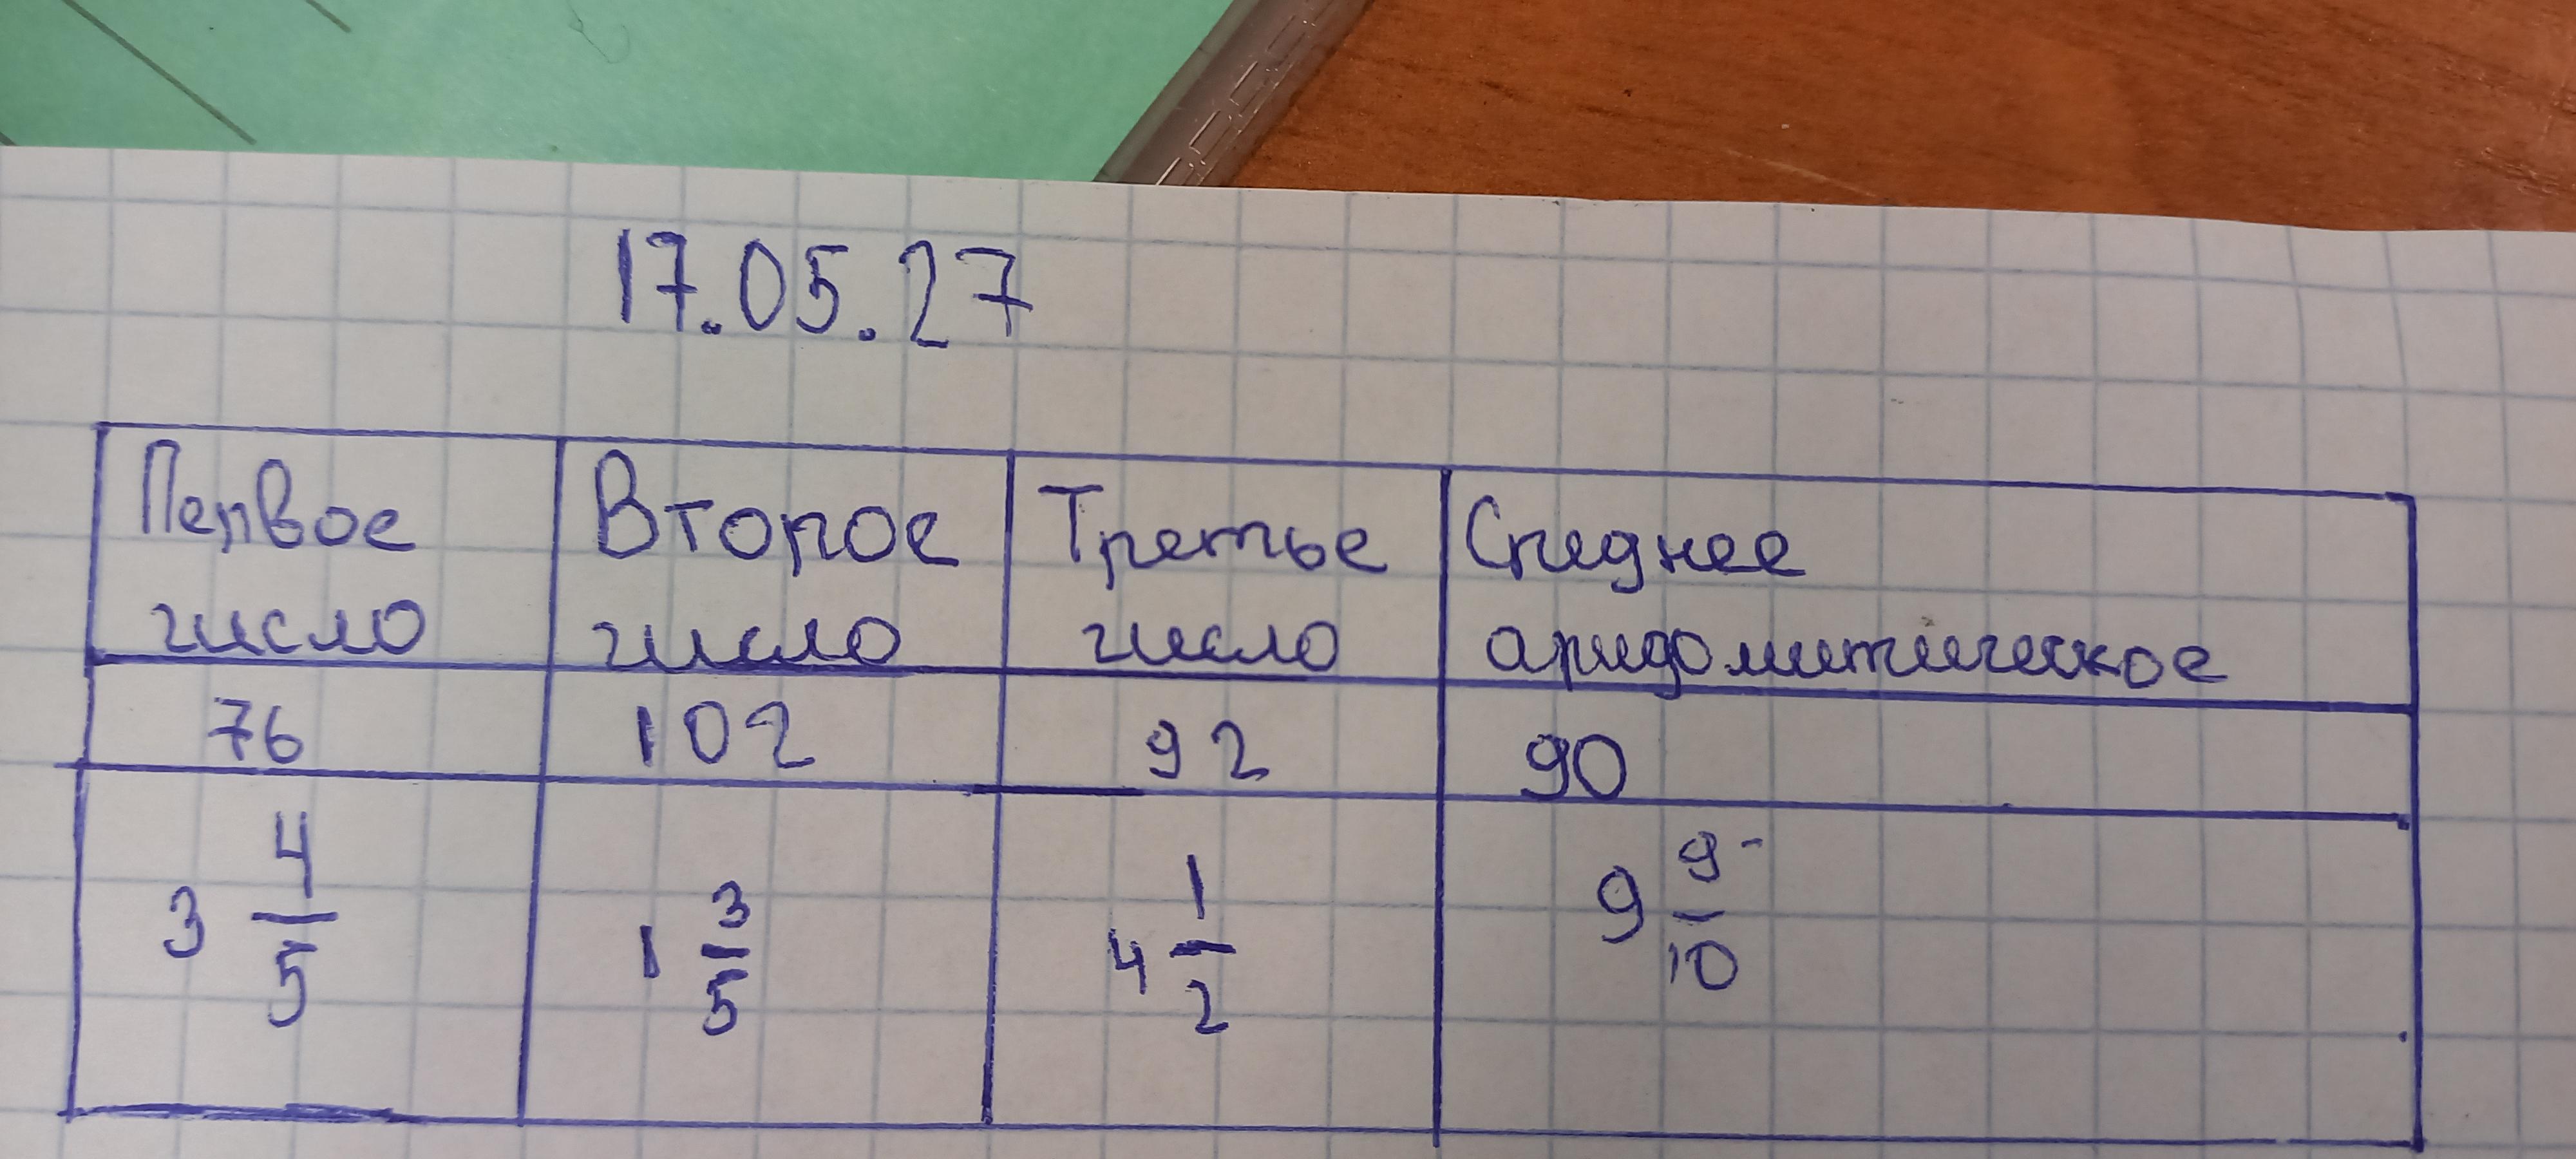 17.05.27
Первое число | Второе число | Третье число | Среднее аридомитическое
76 | 102 | 92 | 90
3 4/5 | 1 3/5 | 4 1/2 | 9 9/10